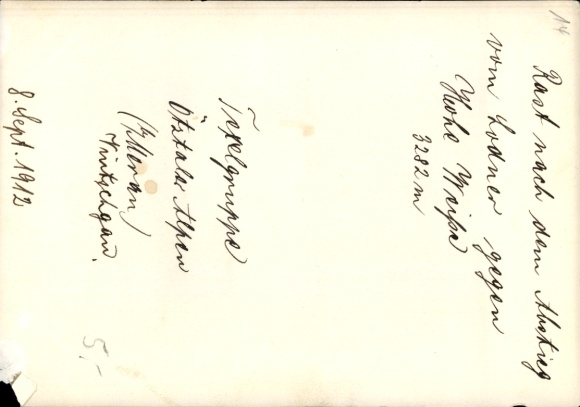 14
Rast nach dem Abstieg
vom Lodner gegen
Hohe Weiße
3282 m
Texelgruppe
Ötztaler Alpen
Meran)
Vintschgau.
8. Sept. 1912
5,-